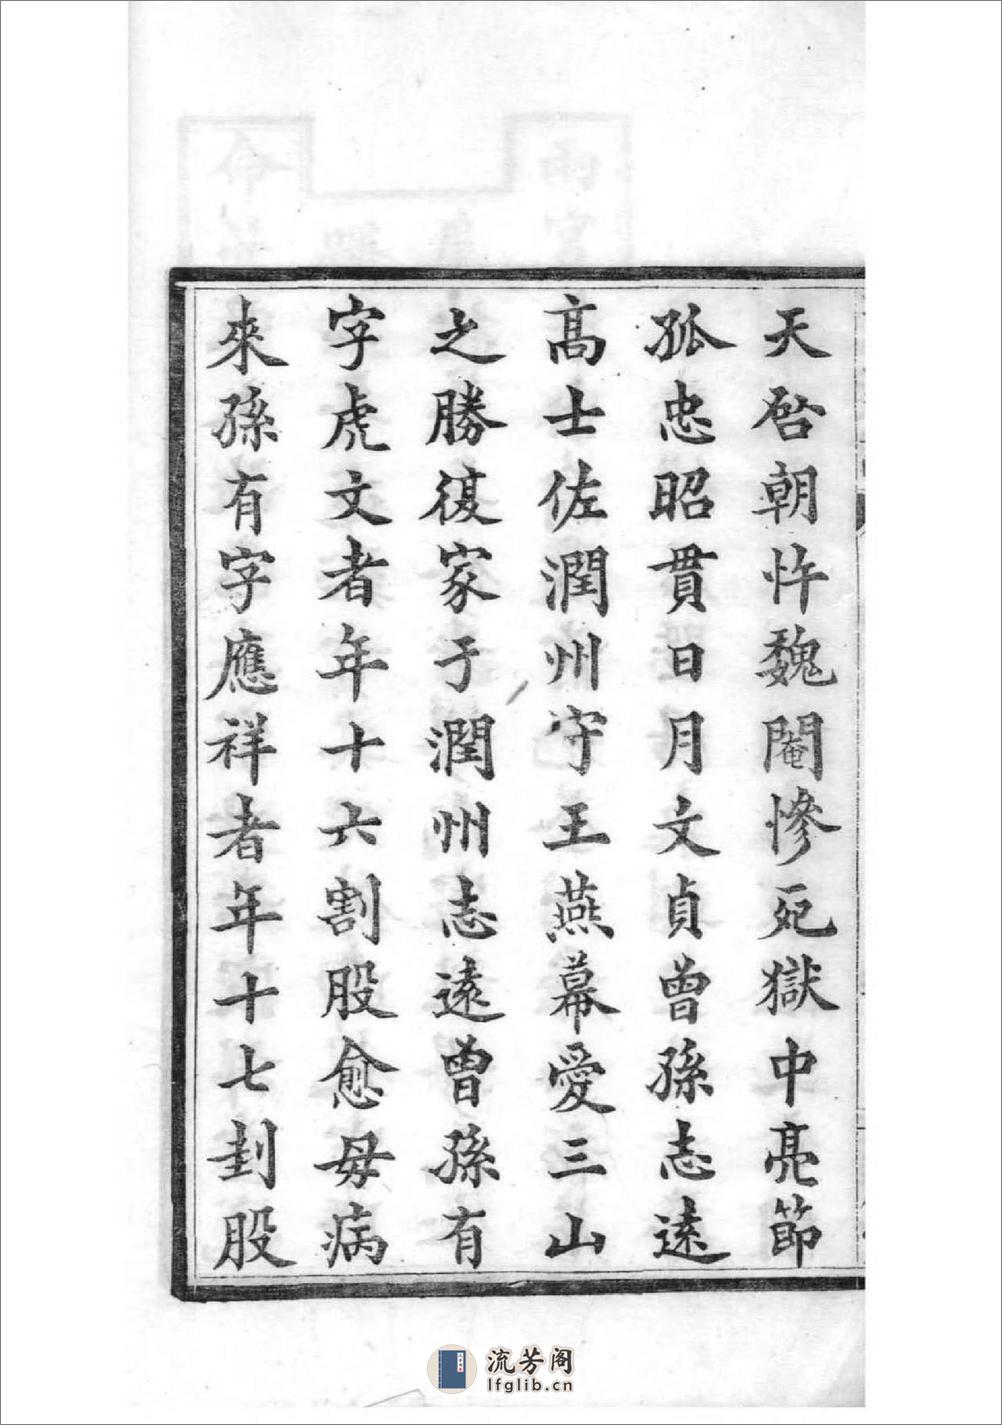 天啓朝忤魏閹慘死獄中亮節
孤忠昭貫日月文貞曾孫志遠
高士佐潤州守王燕幕愛三山
之勝復家于潤州志遠曾孫有
字虎文者年十六割股愈母病
來孫有字應祥者年十七刲股
流芳阁
lfglib.cn